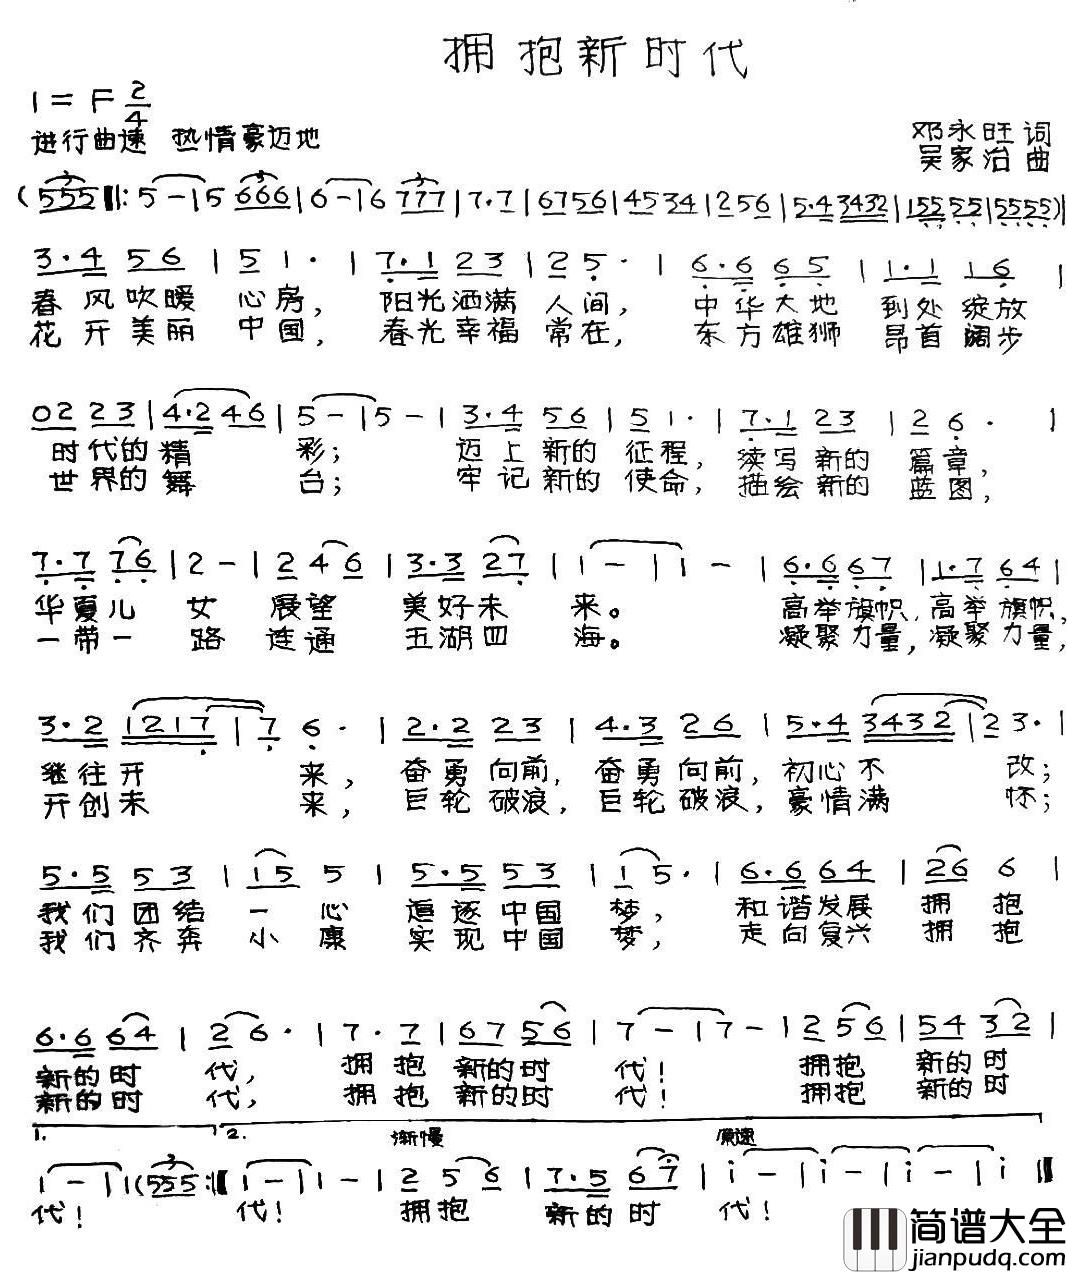 拥抱新时代
1=F 2/4
进行曲速 热情豪迈地
邓永旺 词
吴家治 曲
(555 ‖: 5 - | 5 666 | 6 - | 6 777 | 7·7 | 6756 | 4534 | 256 | 5·4 3432 | 155 55 | 5555) |
3·4 56 | 5 1· | 7·1 23 | 2 5· | 6·6 65 | 1·1 16 |
春风吹暖 心房, 阳光洒满 人间, 中华大地 到处绽放
花开美丽 中国, 春光幸福 常在, 东方雄狮 昂首阔步
02 23 | 4·2 46 | 5 - | 5 - | 3·4 56 | 5 1· | 7·1 23 | 2 6· |
时代的精 彩; 迈上新的 征程, 续写新的 篇章,
世界的舞 台; 牢记新的 使命, 描绘新的 蓝图,
7·7 76 | 2 - | 2 4 6 | 3·3 27 | 1 - | 1 - | 6·6 67 | 1·7 64 |
华夏儿 女 展望 美好未 来。 高举旗帜, 高举旗帜,
一带一 路 连通 五湖四 海。 凝聚力量, 凝聚力量,
3·2 1217 | 7 6· | 2·2 23 | 4·3 26 | 5·4 3432 | 2 3· |
继往开 来, 奋勇向前, 奋勇向前, 初心不 改;
开创未 来, 巨轮破浪, 巨轮破浪, 豪情满 怀;
5·5 53 | 15 5 | 5·5 53 | 1 5· | 6·6 64 | 26 6 |
我们团结 一心 追逐中国 梦, 和谐发展 拥抱
我们齐奔 小康 实现中国 梦, 走向复兴 拥抱
6·6 64 | 2 6· | 7·7 | 67 56 | 7 - | 7 - | 2 5 6 | 54 32 |
新的时 代, 拥抱 新的时 代! 拥抱 新的时
新的时 代, 拥抱 新的时 代! 拥抱 新的时
1. 2. 渐慢 原速
1 - | 1 (555 :‖ 1 - | 1 - | 2 5 6 | 7·5 67 | i - | i - | i - | i ‖
代! 代! 拥抱 新的时 代!
简谱大全
jianpudq.com